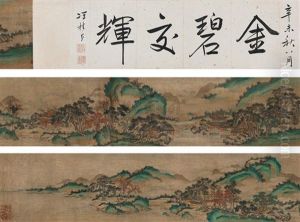 辛未秋八月
金碧交輝